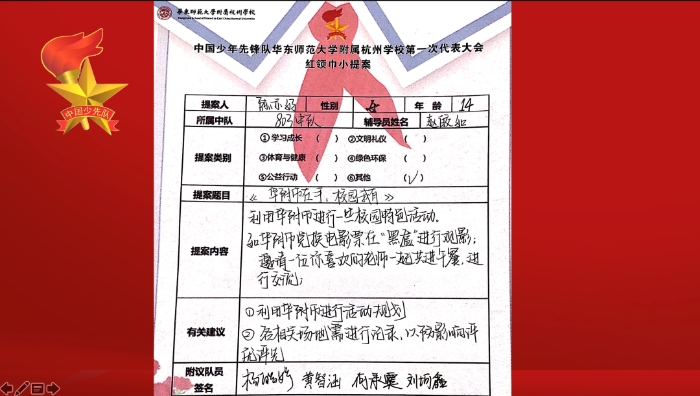 华东师范大学附属杭州学校
中国少先队
中国少年先锋队华东师范大学附属杭州学校第一次代表大会
红领巾小提案
提案人 性别 女 年龄 14
所属中队 803中队 辅导员姓名 赵敏
提案类别 ①学习成长 ( ) ②文明礼仪 ( )
③体育与健康 ( ) ④绿色环保 ( )
⑤公益行动 ( ) ⑥其他 (√)
提案题目 《华附币在手,校园我有》
提案内容 利用华附币进行一些校园特色活动.
如华附币兑换电影票在“黑盒”进行观影;
邀请一位你喜欢的老师一起共进午餐,进
行交流;
有关建议 ①利用华附币进行活动规划
②各相关场地需进行记录,以防影响评
优评先
附议队员
签名 杨 黄 何承 刘